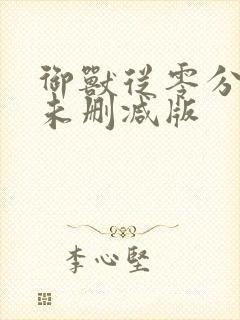 御獸從零分
未删减版
李心堅